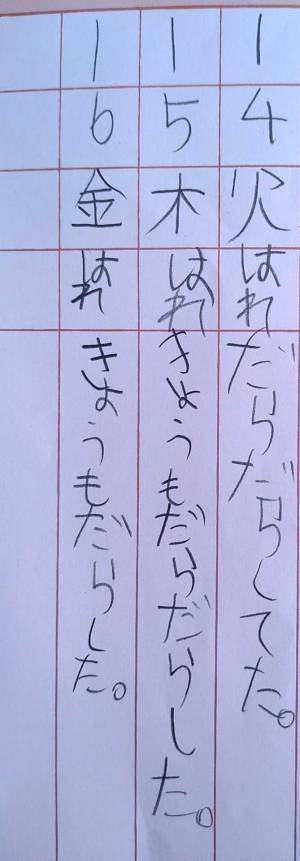 1 4 火 はれ だらだらしてた。
1 5 木 はれ きょうもだらだらした。
1 6 金 はれ きょうもだらした。